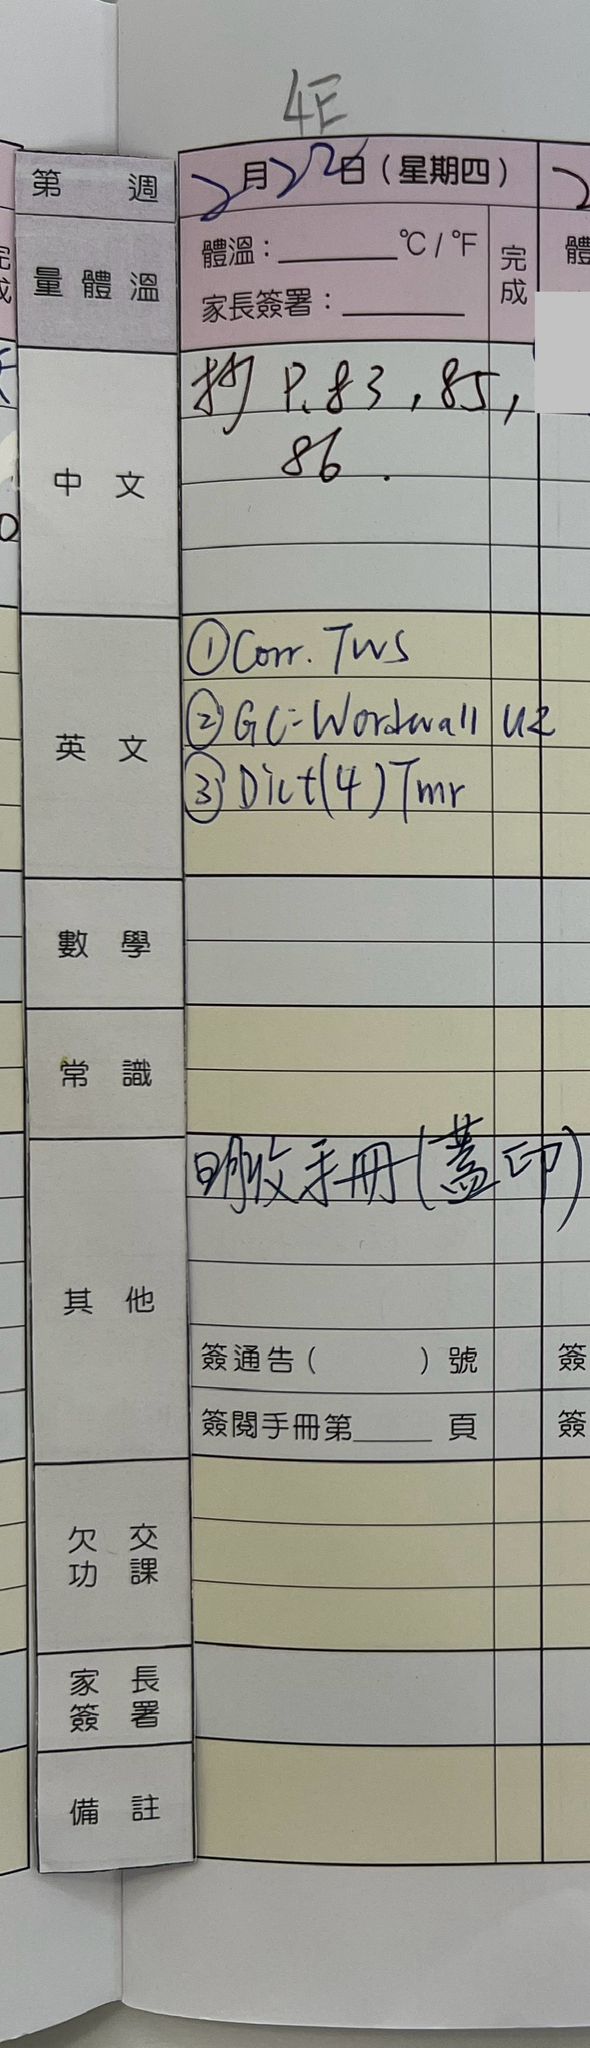 4E
第 週
2月22日(星期四)
量體溫
體溫：______°C / °F
家長簽署：______
完成
體
中文
抄 P.83, 85,
86.
英文
①Corr. TWS
②GC-Wordwall U2
③Dict(4) Tmr
數學
常識
其他
明收手冊(蓋印)
簽通告( )號
簽
簽閱手冊第____頁
簽
欠交功課
家長簽署
備註